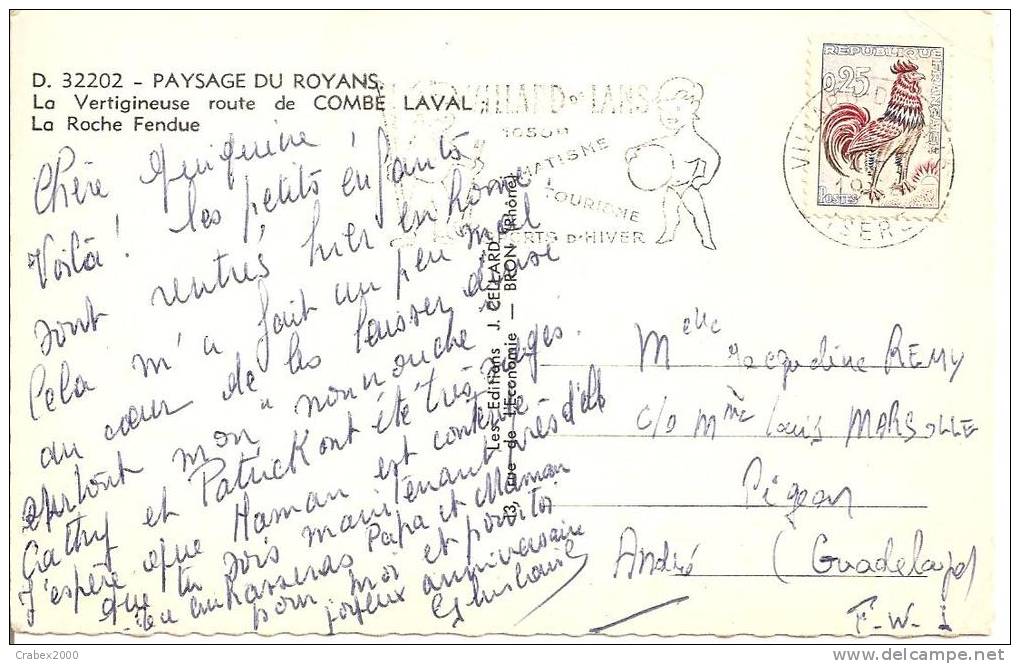 D. 32202 - PAYSAGE DU ROYANS.
La Vertigineuse route de COMBE LAVAL
La Roche Fendue
VILLARD-DE-LANS
1050M
CLIMATISME
TOURISME
SPORTS D'HIVER
REPUBLIQUE FRANÇAISE
0,25
POSTES
ISERE
Chère
Voilà ! les petits enfants
sont rentrés hier en home,
Cela m'a fait un peu mal
au cœur de les laisser,
surtout mon "nounouche"
Cathy et Patrick ont été très sages.
J'espère que Maman est contente
que tu sois maintenant près d'elle
Tu embrasseras Papa et Maman
pour moi et pour toi
joyeux anniversaire
Ghislaine
Les Editions J. CELLARD
13, rue de l'Economie — BRON (Rhône)
Melle Jacqueline REMY
c/o Mme Louis MARSOLLE
Pigeon
André (Guadeloupe)
F.W.I
Crabex2000
www.delcampe.net